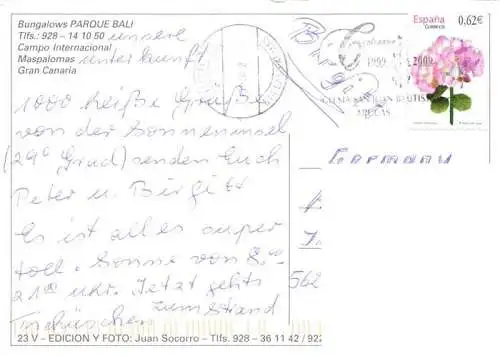 Bungalows PARQUE BALI
Tlfs.: 928 – 14 10 50 unsere
Campo Internacional
Maspalomas unterkunft
Gran Canaria
1000 heiße Grüße
von der Sonneninsel
(29° Grad) senden Euch
Peter u. Birgitt
Es ist alles super
toll. Sonne von 8.00
21.00 Uhr. Jetzt gehts
zum Strand
Tschüsschen
23 V – EDICION Y FOTO: Juan Socorro – Tlfs. 928 – 36 11 42 / 922
España
CORREOS
0,62€
1999 2009
Germany
562